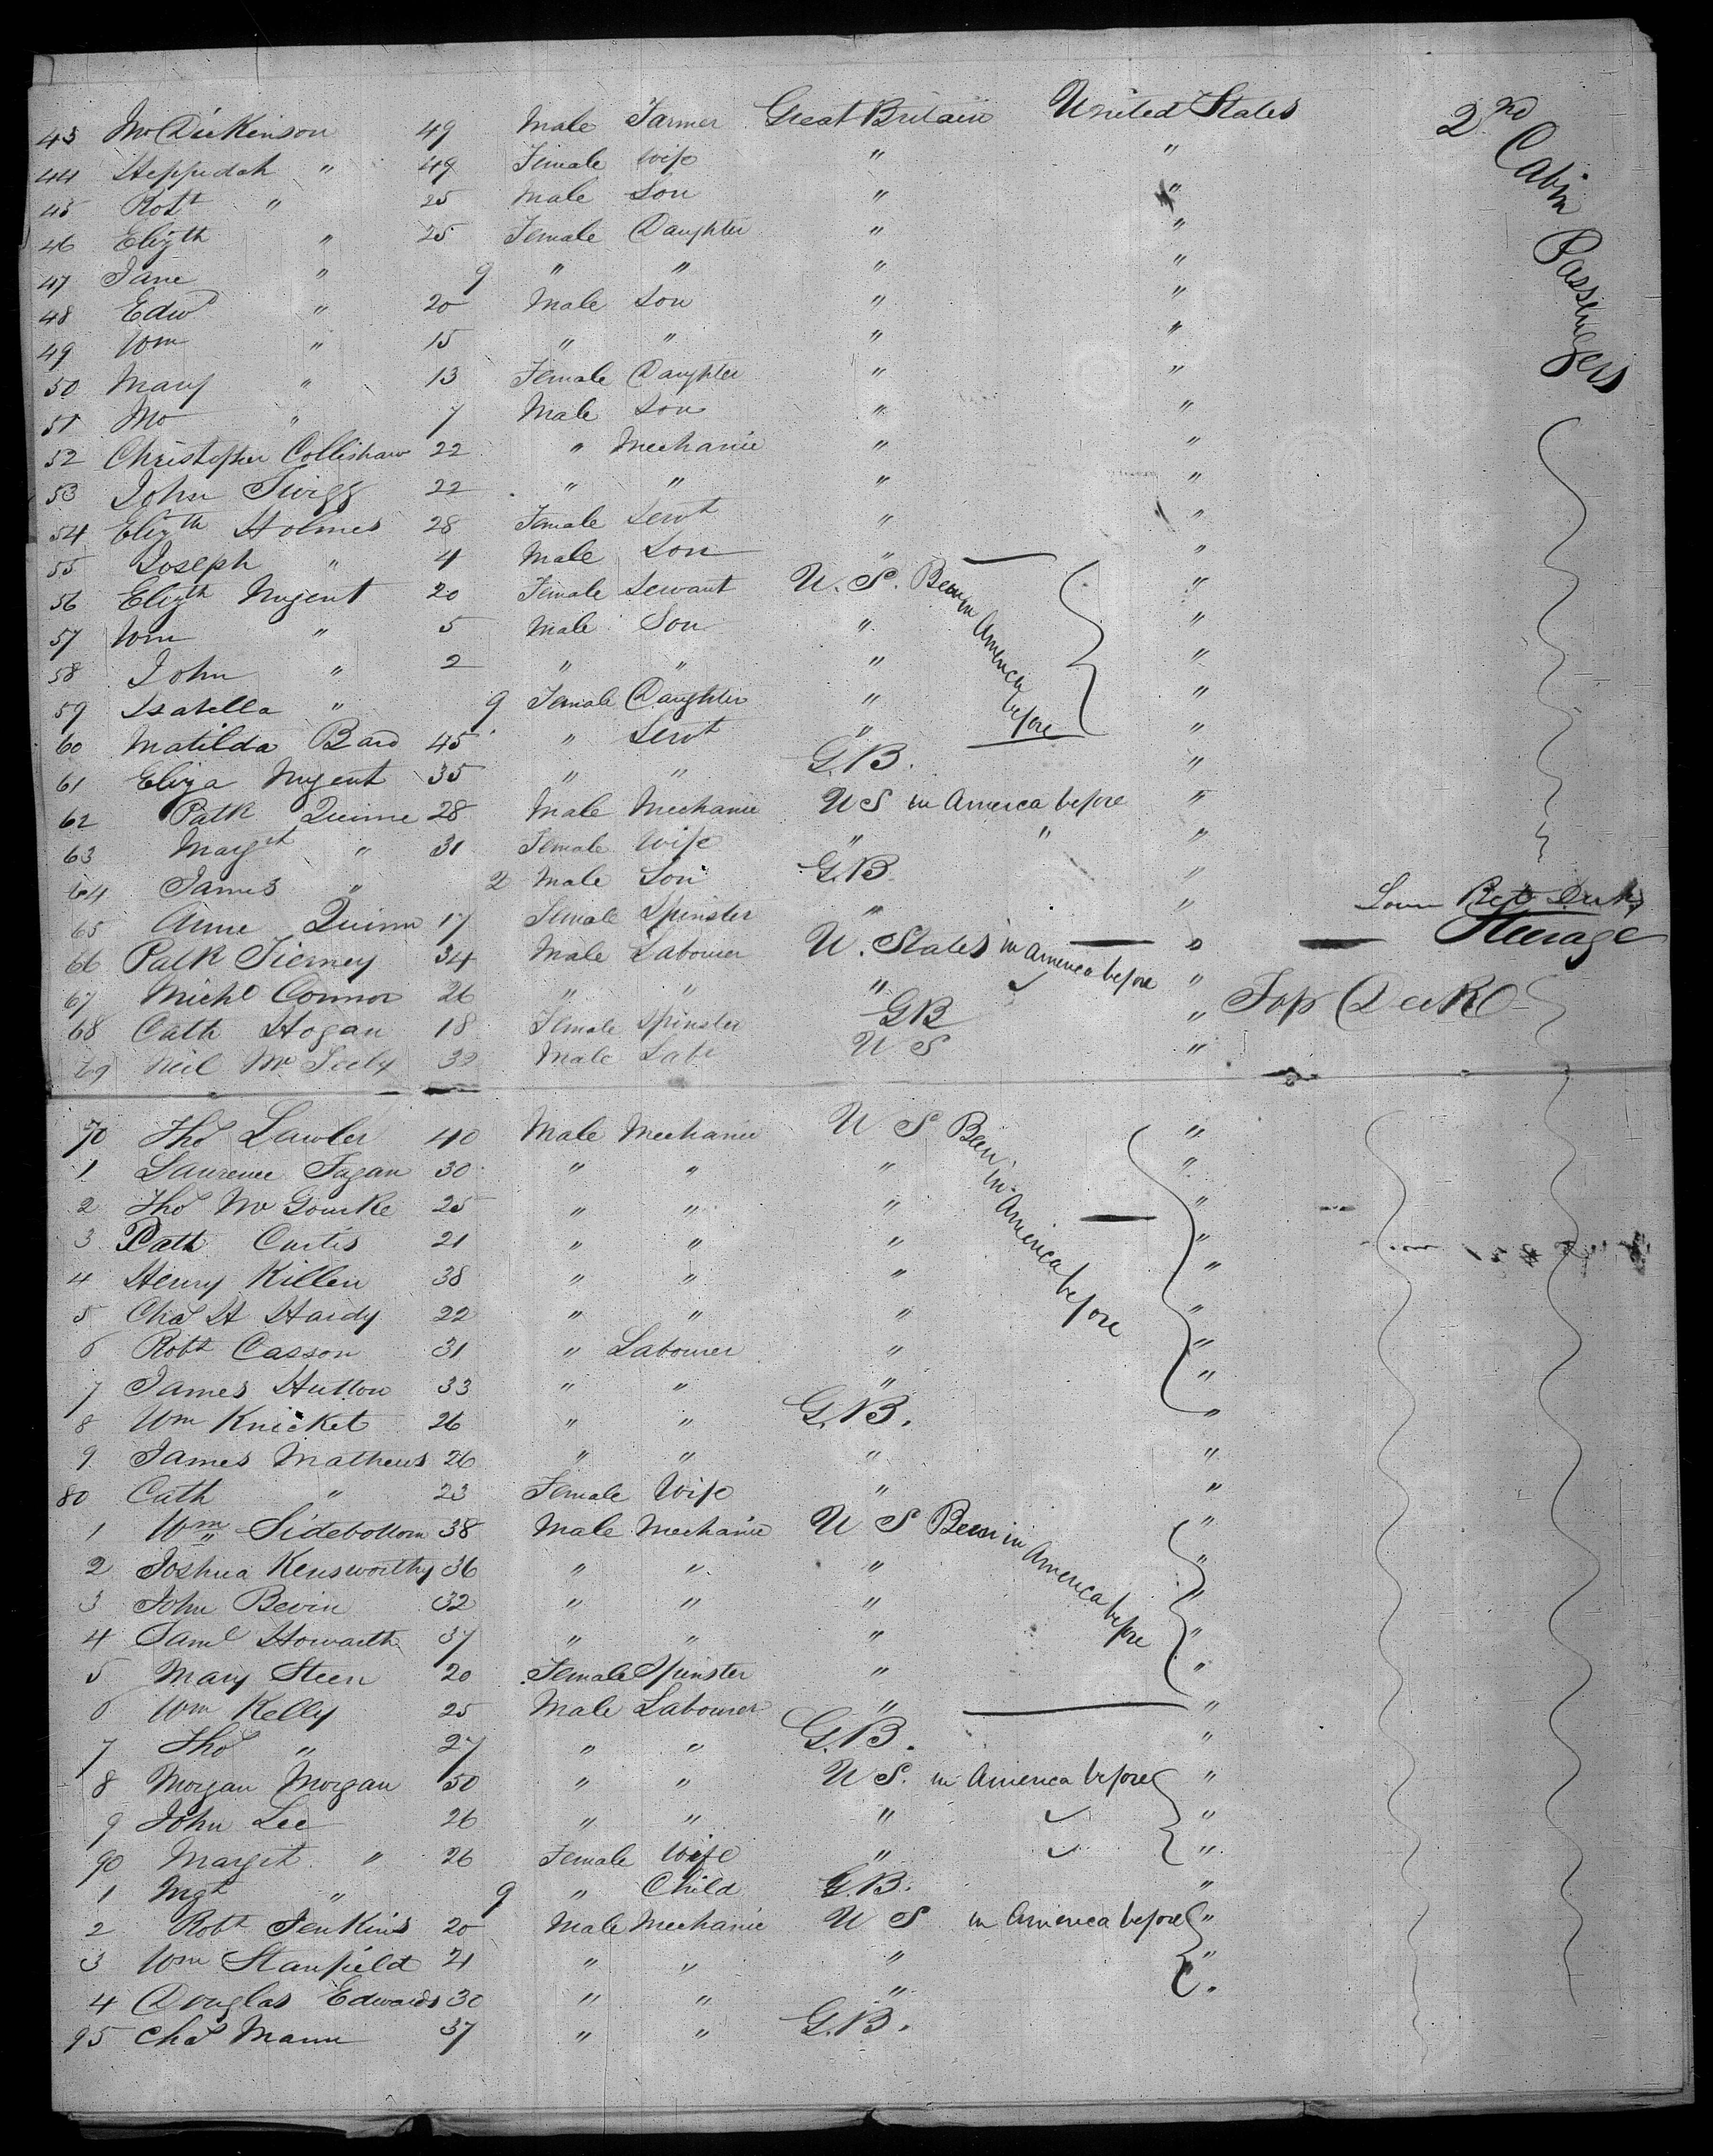 43 Mr Dickinson 49 Male Farmer Great Britain United States 2nd Cabin Passengers
44 Heppedah " 49 Female Wife " "
45 Robt " 25 Male Son " "
46 Elizth " 25 Female Daughter " "
47 Jane " 9 " " " "
48 Edwd " 20 Male Son " "
49 Wm " 15 " " " "
50 Mary " 13 Female Daughter " "
51 " 7 Male Son " "
52 Christopher Collishaw 22 " Mechanic " "
53 John Twigg 22 " " " "
54 Elizth Holmes 28 Female Servt " "
55 Joseph " 4 Male Son " "
56 Elizth Nugent 20 Female Servant U. S. Been in America before "
57 Wm " 5 Male Son " "
58 John " 2 " " " "
59 Isabella " 9 Female Daughter " "
60 Matilda 45 " Servt " "
61 Eliza Nugent 35 " " G.B. "
62 Patk Quinne 28 Male Mechanic U S in America before "
63 Margt " 31 Female Wife " " "
64 James " 2 Male Son G.B. "
65 Anne Quinn 17 Female Spinster " " Deck
66 Patk Tierney 34 Male Labourer U. States in America before " Steerage
67 Michl Connor 26 " " " " Top Deck
68 Cath Hogan 18 Female Spinster GB "
69 Neil Male Labr U S "
70 Thos Lawler 40 Male Mechanic U S Been in America before "
1 Laurence Fagan 30 " " " "
2 Thos Mc Gourke 25 " " " "
3 Path Curtis 21 " " " "
4 Henry Killen 38 " " " "
5 Chas H Hardy 22 " " " "
6 Robt Casson 31 " Labourer " "
7 James Hutton 33 " " " "
8 Wm Knicket 26 " " G.B. "
9 James Mathews 26 " " " "
80 Cath " 23 Female Wife " "
1 Wm Sidebottom 38 Male Mechanic U S Been in America before "
2 Joshua Kensworthy 36 " " " "
3 John Bevin 32 " " " "
4 Saml Howarth 37 " " " "
5 Mary Steen 20 Female Spinster " "
6 Wm Kelly 25 Male Labourer " "
7 Thos " 27 " " G.B. "
8 Morgan Morgan 50 " " U S. in America before "
9 John Lee 26 " " " "
90 Margt " 26 Female Wife " "
1 Mgt " 9 " Child G.B. "
2 Robt Jenkins 20 Male Mechanic U S in America before "
3 Wm Stanfield 21 " " " "
4 Douglas Edwards 30 " " "
95 Chas Mann 37 " " G.B.